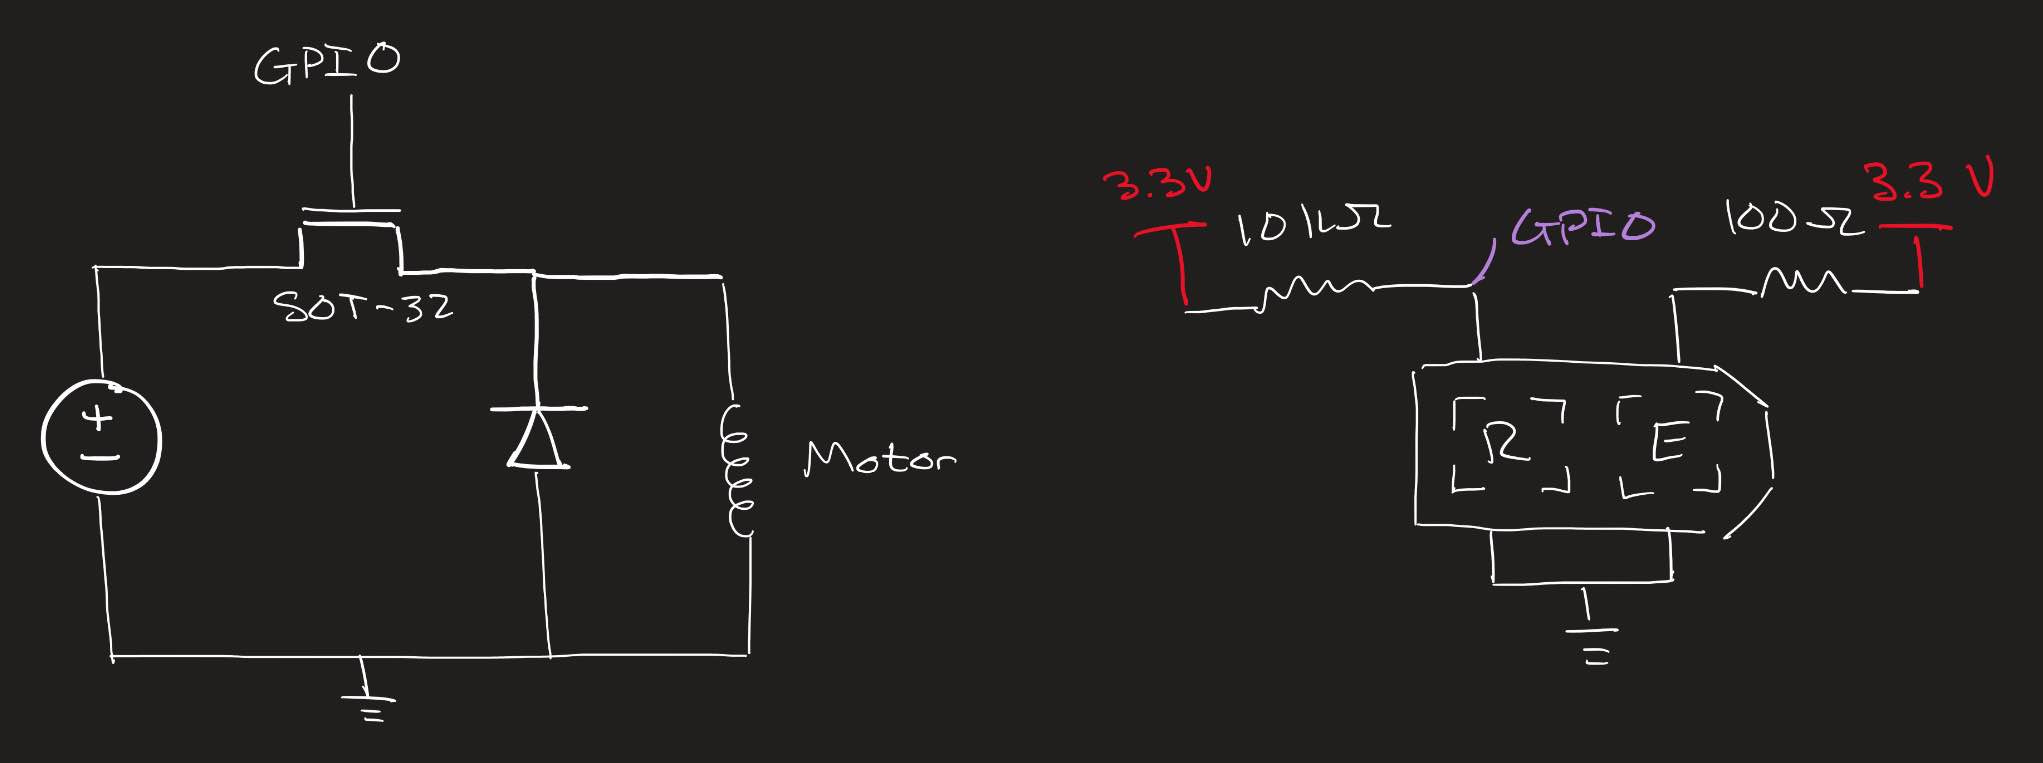 GPIO
SOT-32
+
-
Motor
3.3V
10kΩ
GPIO
100Ω
3.3 V
R
E